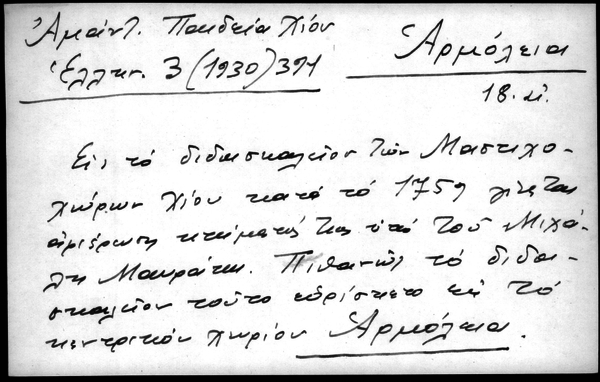 Ἀμάντ. Παιδεία Χίου
Ἑλλην. 3 (1930) 391
Ἁρμόλεια
18. αἰ.
Εἰς τὸ διδασκαλεῖον τῶν Μαστιχο-
χώρων Χίου κατὰ τὸ 1759 γίνεται
ἀφιέρωσις κτήματός της ὑπὸ τοῦ Μιχά-
λη Μαυράκη. Πιθανῶς τὸ διδα-
σκαλεῖον τοῦτο εὑρίσκετο εἰς τὸ
κεντρικὸν χωρίον Ἁρμόλεια.